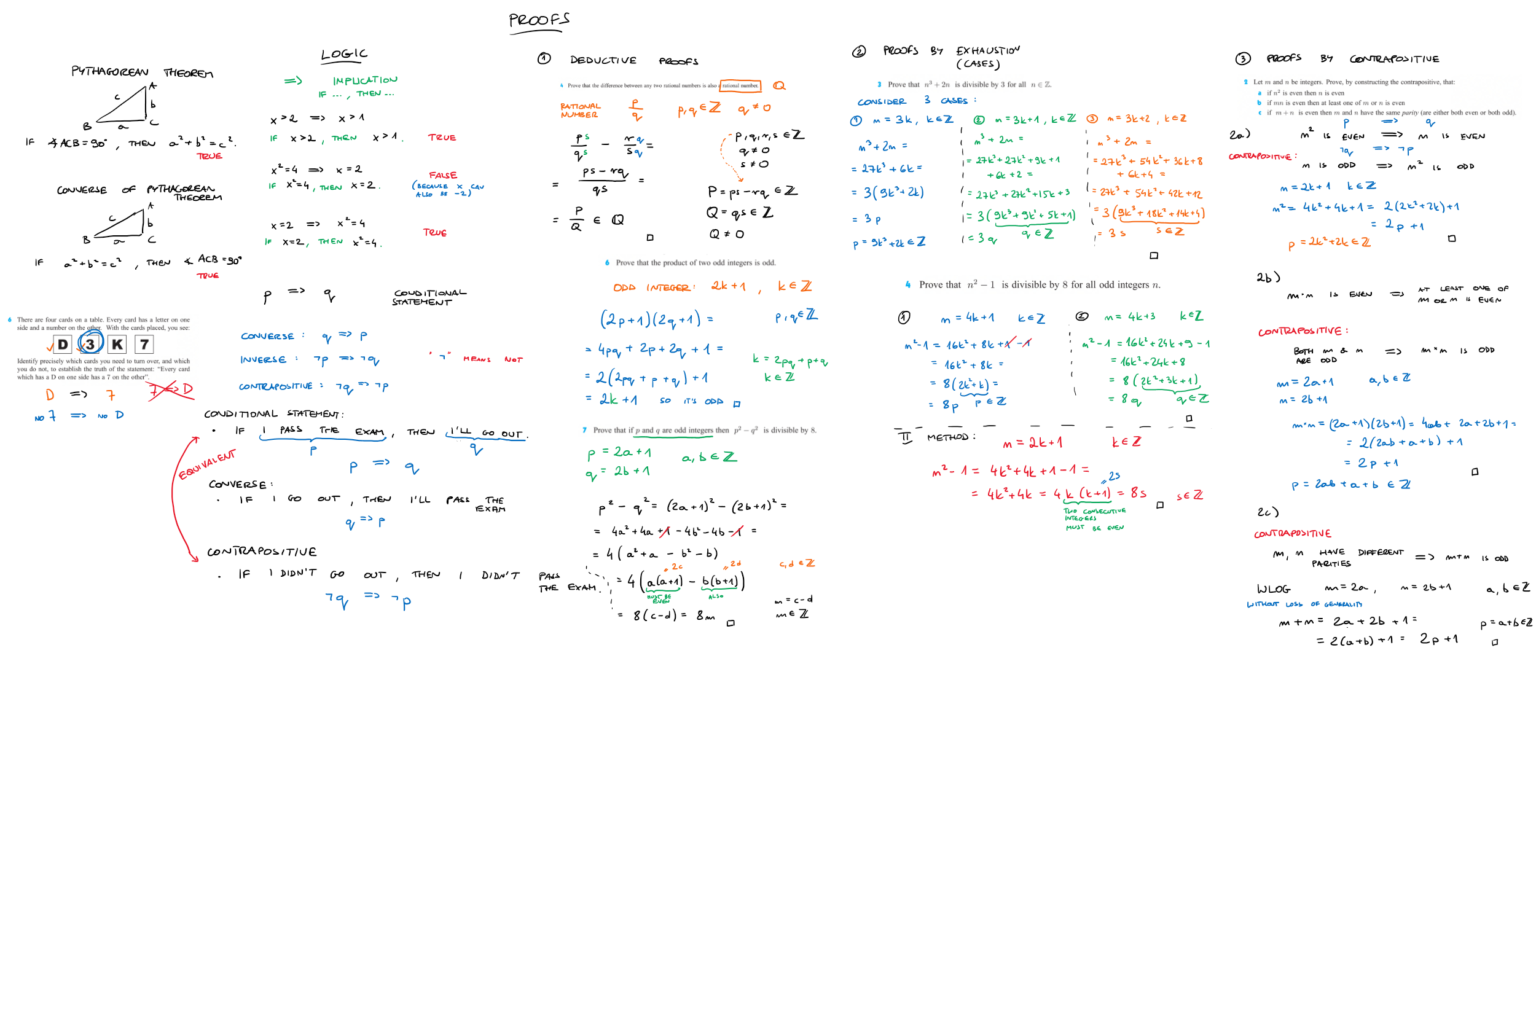 PROOFS
PYTHAGOREAN THEOREM
A
c
b
B
a
C
IF ∢ACB = 90°, THEN a² + b² = c².
TRUE
CONVERSE OF PYTHAGOREAN
THEOREM
A
c
b
B
a
C
IF a² + b² = c², THEN ∢ ACB = 90°
TRUE
There are four cards on a table. Every card has a letter on one
side and a number on the other. With the cards placed, you see:
D 3 K 7
Identify precisely which cards you need to turn over, and which
you do not, to establish the truth of the statement: "Every card
which has a D on one side has a 7 on the other".
D => 7
7 => D
NO 7 => NO D
LOGIC
=> IMPLICATION
IF ..., THEN ...
x > 2 => x > 1
IF x > 2, THEN x > 1. TRUE
x² = 4 => x = 2
IF x² = 4, THEN x = 2. FALSE
(BECAUSE X CAN
ALSO BE -2)
x = 2 => x² = 4
IF x = 2, THEN x² = 4. TRUE
p => q CONDITIONAL
STATEMENT
CONVERSE : q => p
INVERSE : ¬p => ¬q "¬" MEANS NOT
CONTRAPOSITIVE : ¬q => ¬p
CONDITIONAL STATEMENT:
• IF I PASS THE EXAM, THEN I'LL GO OUT.
p q
p => q
EQUIVALENT
CONVERSE :
• IF I GO OUT, THEN I'LL PASS THE
EXAM
q => p
CONTRAPOSITIVE
• IF I DIDN'T GO OUT, THEN I DIDN'T PASS
THE EXAM.
¬q => ¬p
① DEDUCTIVE PROOFS
4 Prove that the difference between any two rational numbers is also a rational number. ℚ
RATIONAL
NUMBER p/q p, q ∈ ℤ q ≠ 0
ps/qs - rq/sq =
p, q, r, s ∈ ℤ
q ≠ 0
s ≠ 0
= (ps - rq)/qs =
P = ps - rq ∈ ℤ
Q = qs ∈ ℤ
Q ≠ 0
= P/Q ∈ ℚ
□
6 Prove that the product of two odd integers is odd.
ODD INTEGER: 2k+1, k ∈ ℤ
(2p+1)(2q+1) = p, q ∈ ℤ
= 4pq + 2p + 2q + 1 =
= 2(2pq + p + q) + 1
k = 2pq + p + q
k ∈ ℤ
= 2k + 1 SO IT'S ODD □
7 Prove that if p and q are odd integers then p² - q² is divisible by 8.
p = 2a+1
q = 2b+1 a, b ∈ ℤ
p² - q² = (2a+1)² - (2b+1)² =
= 4a² + 4a + 1 - 4b² - 4b - 1 =
= 4(a² + a - b² - b)
2c 2d c, d ∈ ℤ
= 4(a(a+1) - b(b+1))
MUST BE
EVEN
ALSO
= 8(c-d) = 8m □
m = c-d
m ∈ ℤ
② PROOFS BY EXHAUSTION
(CASES)
3 Prove that n³ + 2n is divisible by 3 for all n ∈ ℤ.
CONSIDER 3 CASES :
① n = 3k, k ∈ ℤ
n³ + 2n =
= 27k³ + 6k =
= 3(9k³ + 2k)
= 3p
p = 9k³ + 2k ∈ ℤ
② n = 3k+1, k ∈ ℤ
n³ + 2n =
= 27k³ + 27k² + 9k + 1
+ 6k + 2 =
= 27k³ + 27k² + 15k + 3
= 3(9k³ + 9k² + 5k + 1)
= 3q q ∈ ℤ
③ n = 3k+2, k ∈ ℤ
n³ + 2n =
= 27k³ + 54k² + 36k + 8
+ 6k + 4 =
= 27k³ + 54k² + 42k + 12
= 3(9k³ + 18k² + 14k + 4)
= 3s s ∈ ℤ
□
4 Prove that n² - 1 is divisible by 8 for all odd integers n.
① n = 4k+1 k ∈ ℤ
n² - 1 = 16k² + 8k + 1 - 1
= 16k² + 8k =
= 8(2k² + k) =
= 8p p ∈ ℤ
② n = 4k+3 k ∈ ℤ
n² - 1 = 16k² + 24k + 9 - 1
= 16k² + 24k + 8
= 8(2k² + 3k + 1)
= 8q q ∈ ℤ
□
II METHOD : n = 2k+1 k ∈ ℤ
n² - 1 = 4k² + 4k + 1 - 1 =
2s
= 4k² + 4k = 4k(k+1) = 8s □ s ∈ ℤ
TWO CONSECUTIVE
INTEGERS
MUST BE EVEN
③ PROOFS BY CONTRAPOSITIVE
2 Let m and n be integers. Prove, by constructing the contrapositive, that:
a if n² is even then n is even
b if mn is even then at least one of m or n is even
c if m + n is even then m and n have the same parity (are either both even or both odd).
p => q
2a) n² IS EVEN => n IS EVEN
¬q => ¬p
CONTRAPOSITIVE :
n IS ODD => n² IS ODD
n = 2k+1 k ∈ ℤ
n² = 4k² + 4k + 1 = 2(2k² + 2k) + 1
= 2p + 1
p = 2k² + 2k ∈ ℤ □
2b)
m·n IS EVEN => AT LEAST ONE OF
m OR n IS EVEN
CONTRAPOSITIVE :
BOTH m & n
ARE ODD => m·n IS ODD
m = 2a+1 a, b ∈ ℤ
n = 2b+1
m·n = (2a+1)(2b+1) = 4ab + 2a + 2b + 1 =
= 2(2ab + a + b) + 1
= 2p + 1
p = 2ab + a + b ∈ ℤ □
2c)
CONTRAPOSITIVE
m, n HAVE DIFFERENT
PARITIES => m+n IS ODD
WLOG m = 2a, n = 2b+1 a, b ∈ ℤ
WITHOUT LOSS OF GENERALITY
m + n = 2a + 2b + 1 = p = a+b ∈ ℤ
= 2(a+b) + 1 = 2p + 1 □